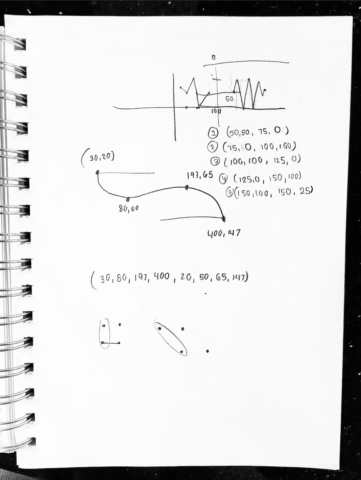 0
50
100
① (50,50, 75, 0)
② (75, 0, 100,100)
③ (100,100, 125, 0)
④ (125,0, 150,100)
⑤ (150,100, 150, 25)
(30,20)
197,65
400, 147
(30, 80, 197, 400, 20, 50, 65, 147)